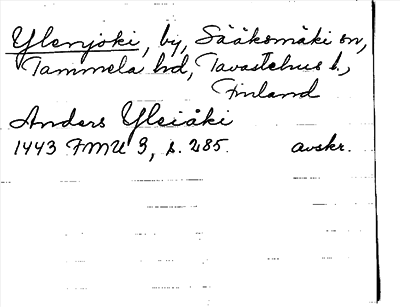 Ylenjoki, by, Sääksmäki sn,
Tammela hd, Tavastehus l.,
Finland
Anders Yleiäki
1443 FMU 3, s. 285. avskr.